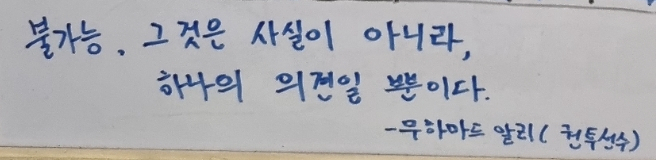 불가능. 그것은 사실이 아니라,
하나의 의견일 뿐이다.
-무하마드 알리( 권투선수)